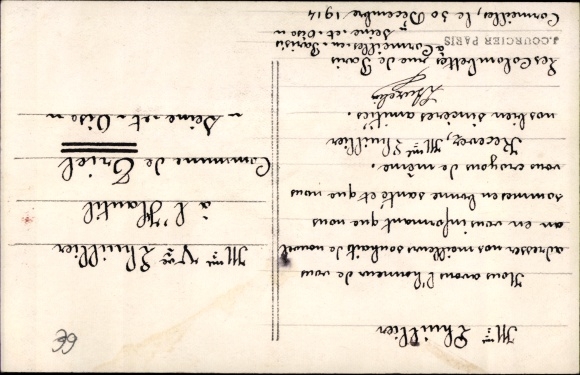 Mme Lhuillier
Nous avons l'honneur de vous
adresser nos meilleurs souhaits de nouvel
an en vous informant que nous
sommes en bonne santé et que nous
vous croyons de même.
Recevez, Mme Lhuillier
nos bien sincères amitiés.
Les Colombettes rue de Paris
à Cormeilles-en-Parisis
" Seine-et-Oise "
Cormeilles, le 30 Décembre 1914
J. COURCIER PARIS
Mme Vve Lhuillier
à l'Hautil
Commune de Triel
" Seine-et-Oise "
39